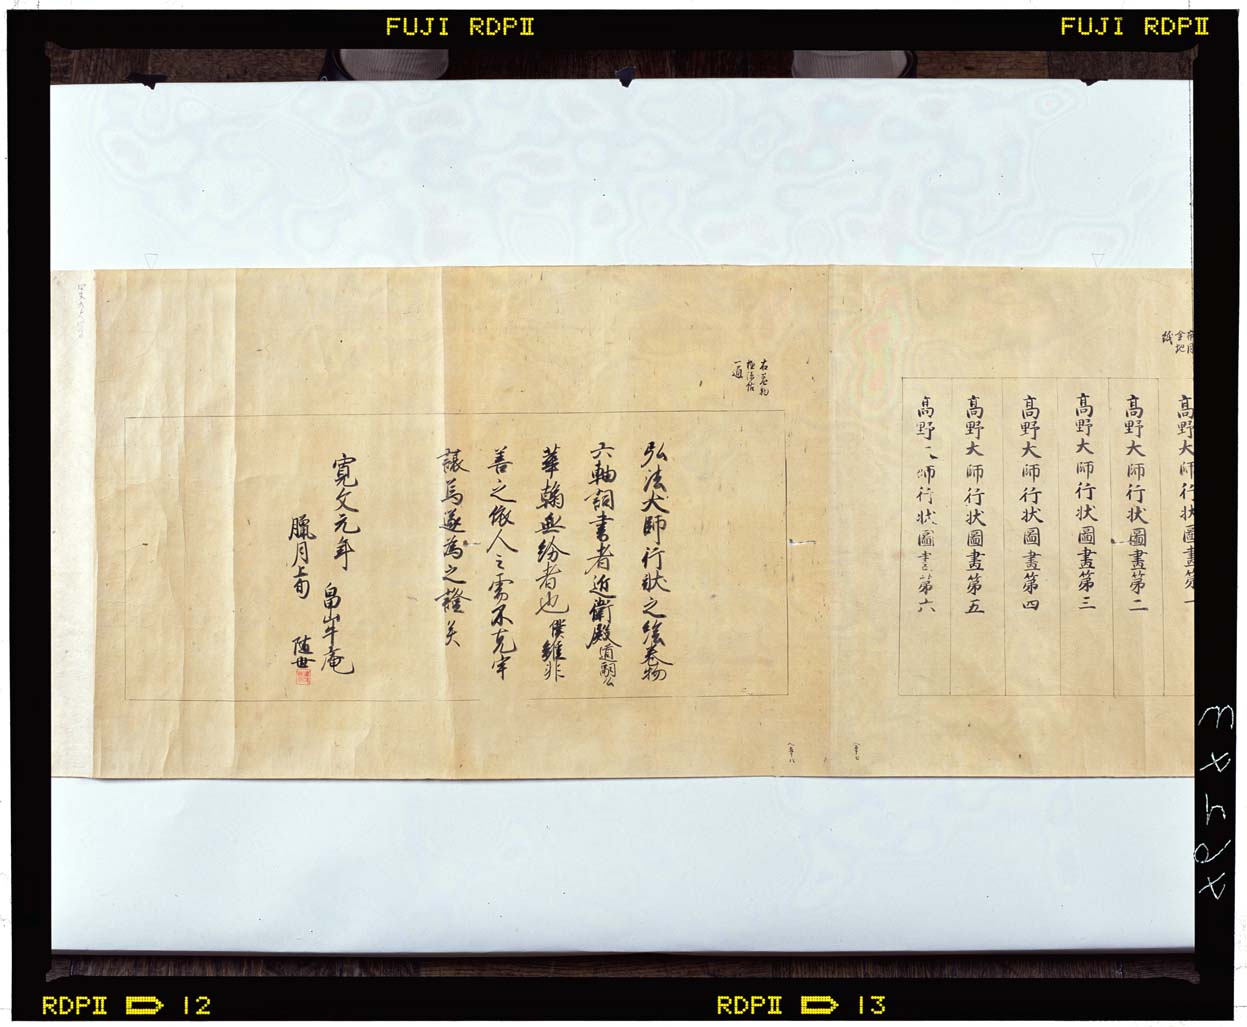 FUJI RDPⅡ
FUJI RDPⅡ
高野大師行状圖畫第一
高野大師行状圖畫第二
高野大師行状圖畫第三
高野大師行状圖畫第四
高野大師行状圖畫第五
高野 師行状圖畫第六
右巻物
一通
弘法大師行状之絵巻物
六軸詞書者近衛殿道嗣公
華翰無紛者也僕雖非
善之依人之需不克牢
譲焉遂為之證矣
寛文元年 畠山牛庵
臘月上旬 随世
RDPⅡ 12
RDPⅡ 13